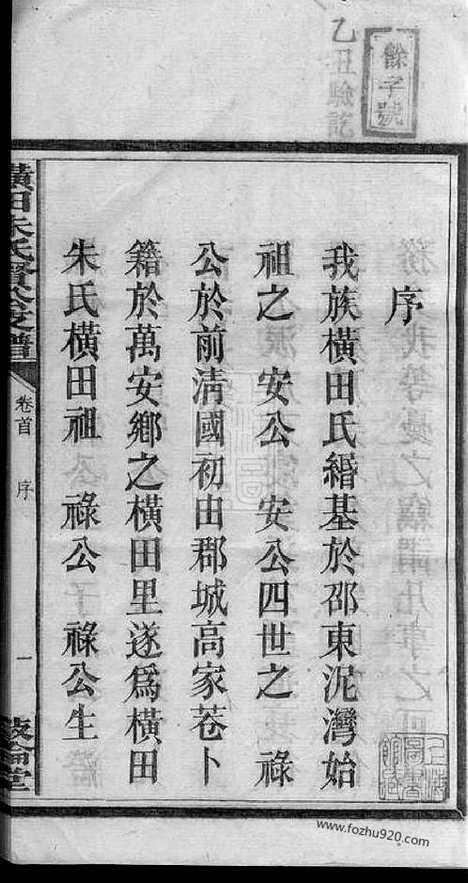 乙丑
餘字號
序
我族橫田氏緡基於邵東泥灣始
祖之　安公　安公四世之　祿
公於前清國初由郡城高家菴卜
籍於萬安鄉之橫田里遂爲橫田
朱氏橫田祖　祿公　祿公生
橫田朱氏賢公支譜
卷首　序
一
堂
www.fozhu920.com